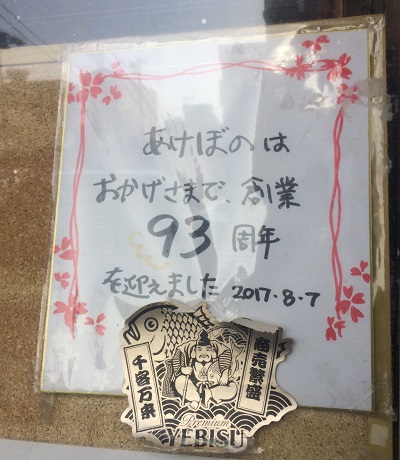 あけぼのは
おかげさまで、創業
93周年
を迎えました 2017.8.7
商売繁盛
千客万来
Premium
YEBISU